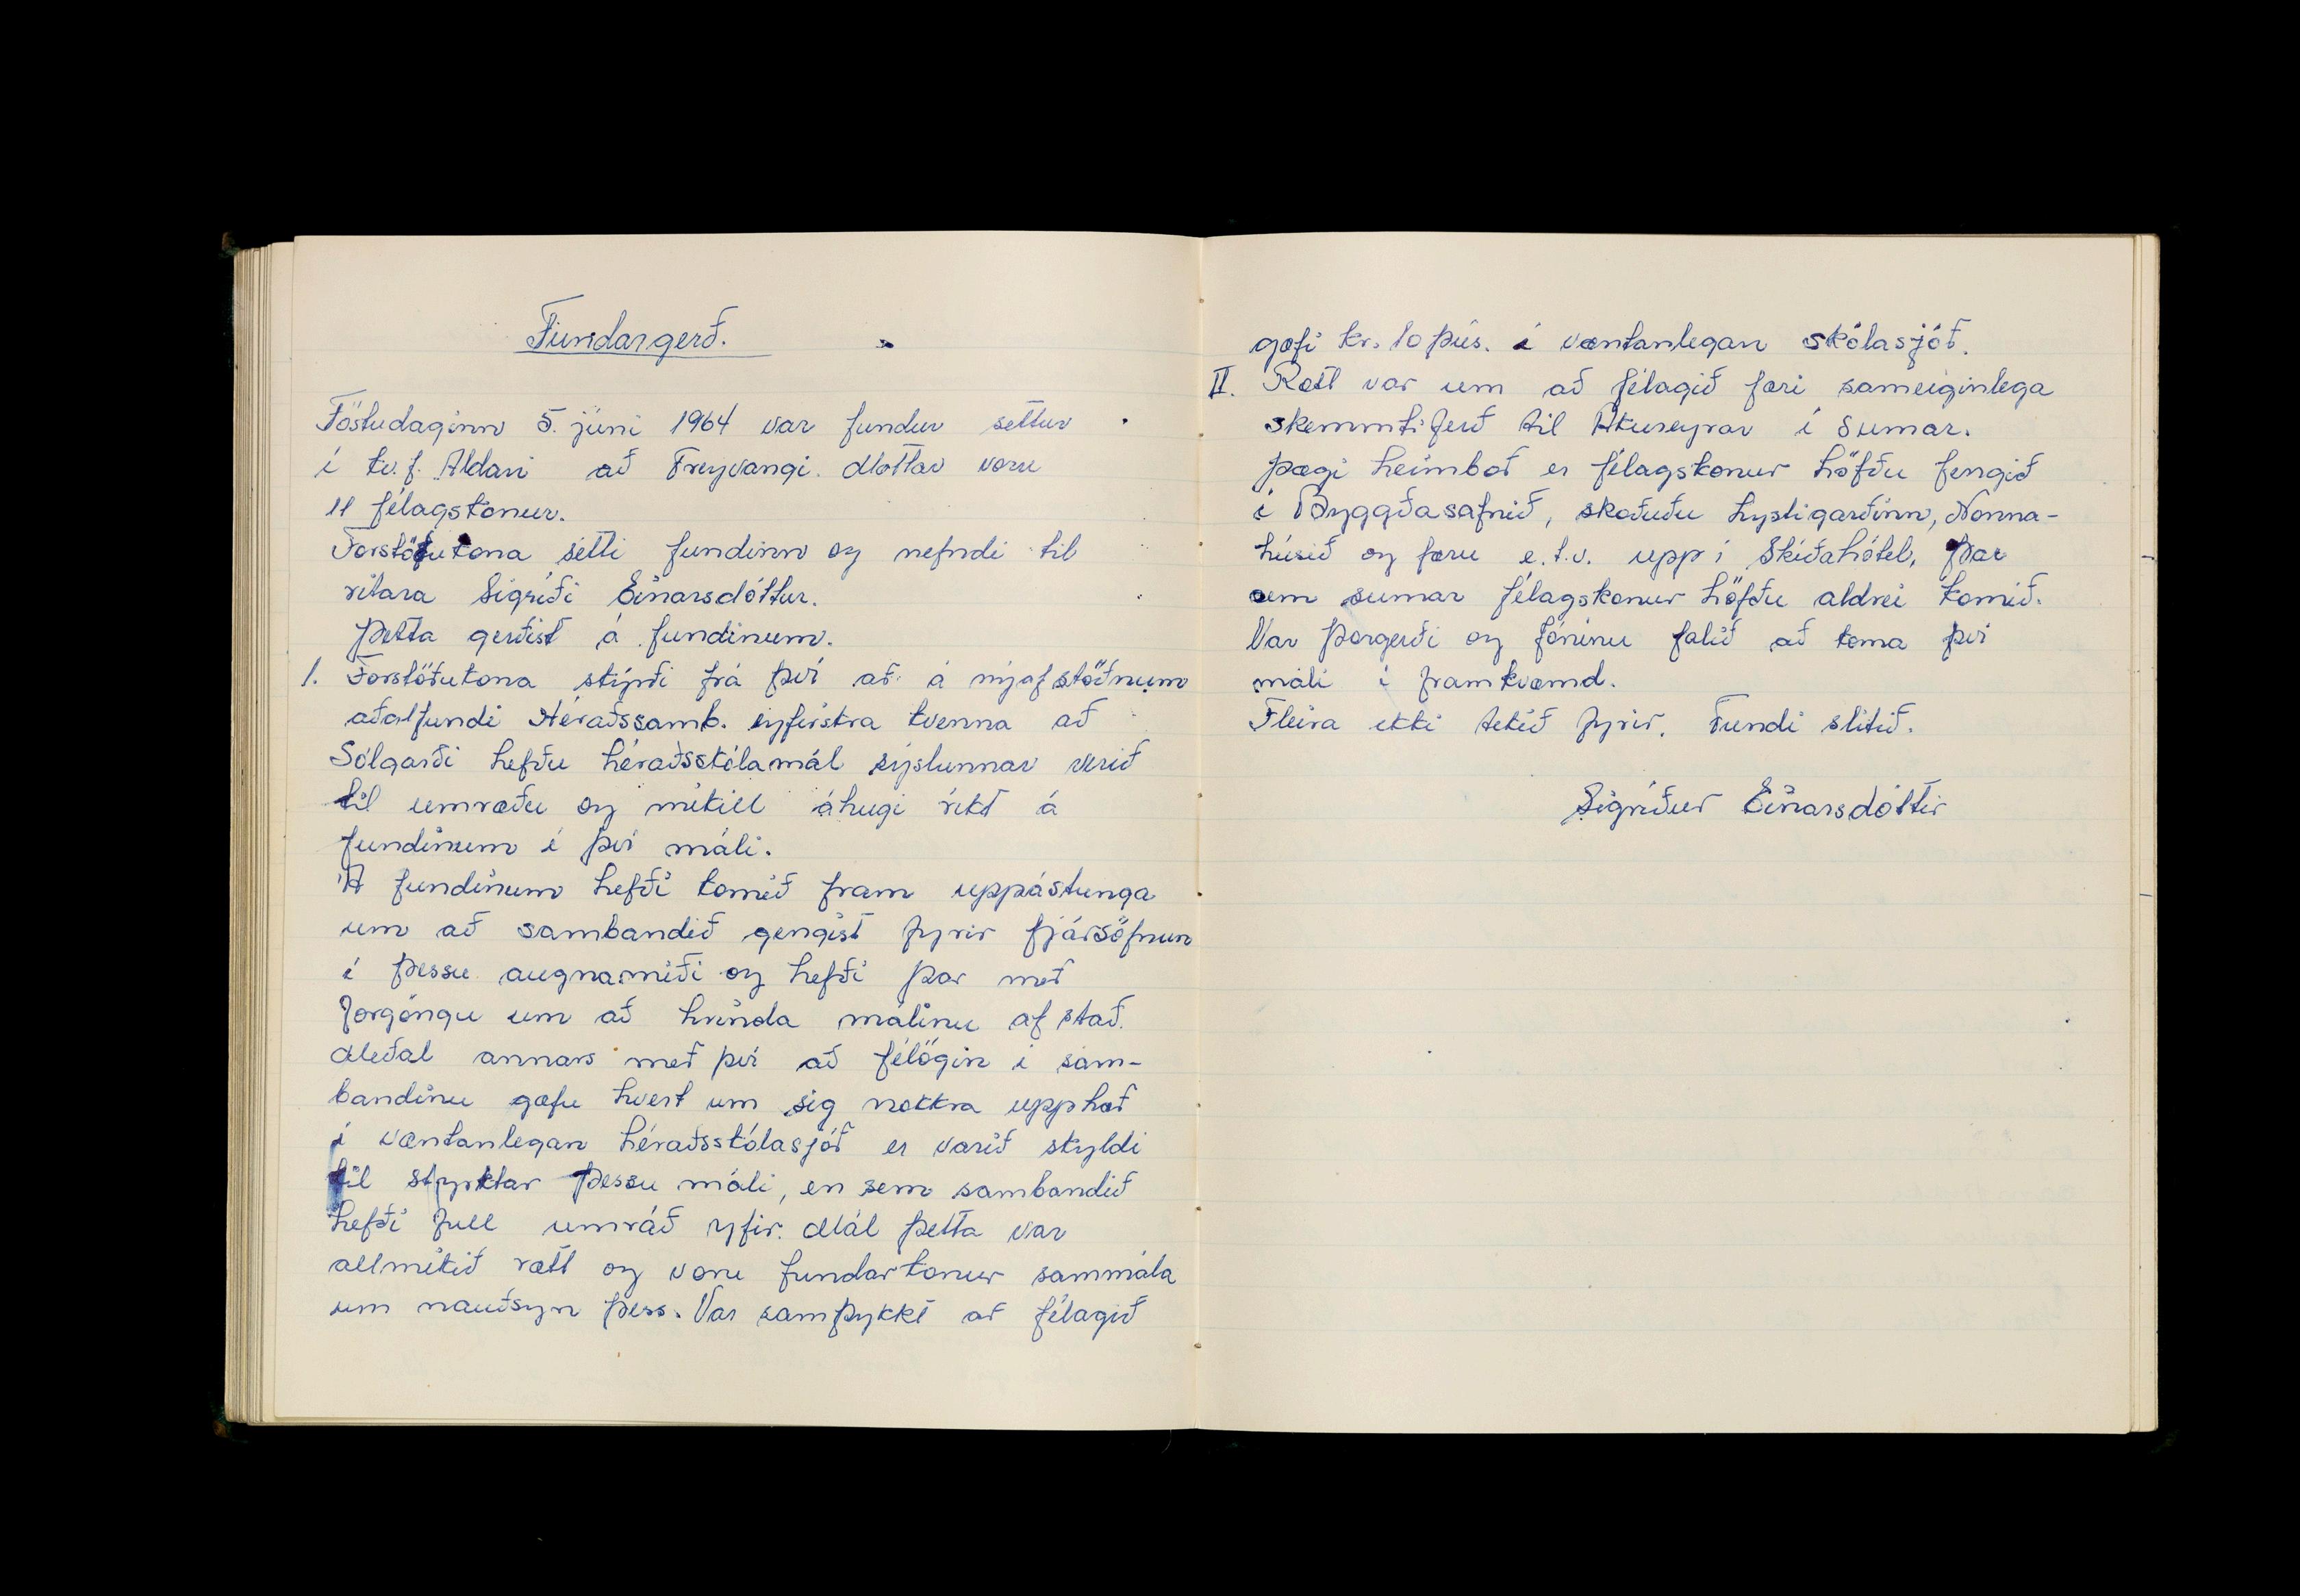 Fundargerð.
Föstudaginn 5. júni 1964 var fundur settur
í kv.f. Aldan að Freyvangi. Mættar voru
11 félagskonur.
Forstöðukona setti fundinn og nefndi til
ritara Sigríði Einarsdóttur.
Þetta gerðist á fundinum.
1. Forstöðukona skýrði frá því að á nýafstöðnum
aðalfundi Héraðssamb. eyfirskra kvenna að
Sólgarði hefðu héraðsskólamál sýslunnar verið
til umræðu og mikill áhugi ríkt á
fundinum í því máli.
Á fundinum hefði komið fram uppástunga
um að sambandið gengist fyrir fjársöfnun
í þessu augnamiði og hefði þar með
forgöngu um að hrinda málinu af stað.
Meðal annars með því að félögin í sam-
bandinu gæfu hvert um sig nokkra upphæð
í væntanlegan héraðsskólasjóð er varið skyldi
til styrktar þessu máli, en sem sambandið
hefði full umráð yfir. Mál þetta var
allmikið rætt og voru fundarkonur sammála
um nauðsyn þess. Var samþykkt að félagið
gæfi kr. 10 þús. í væntanlegan skólasjóð.
II. Rætt var um að félagið færi sameiginlega
skemmtiferð til Akureyrar í sumar.
Þægi heimboð er félagskonur höfðu fengið
í Byggðasafnið, skoðuðu Lystigarðinn, Nonna-
húsið og færu e.t.v. upp í Skíðahótel, þar
sem sumar félagskonur höfðu aldrei komið.
Var Þorgerði og Jónínu falið að koma því
máli í framkvæmd.
Fleira ekki tekið fyrir. Fundi slitið.
Sigríður Einarsdóttir